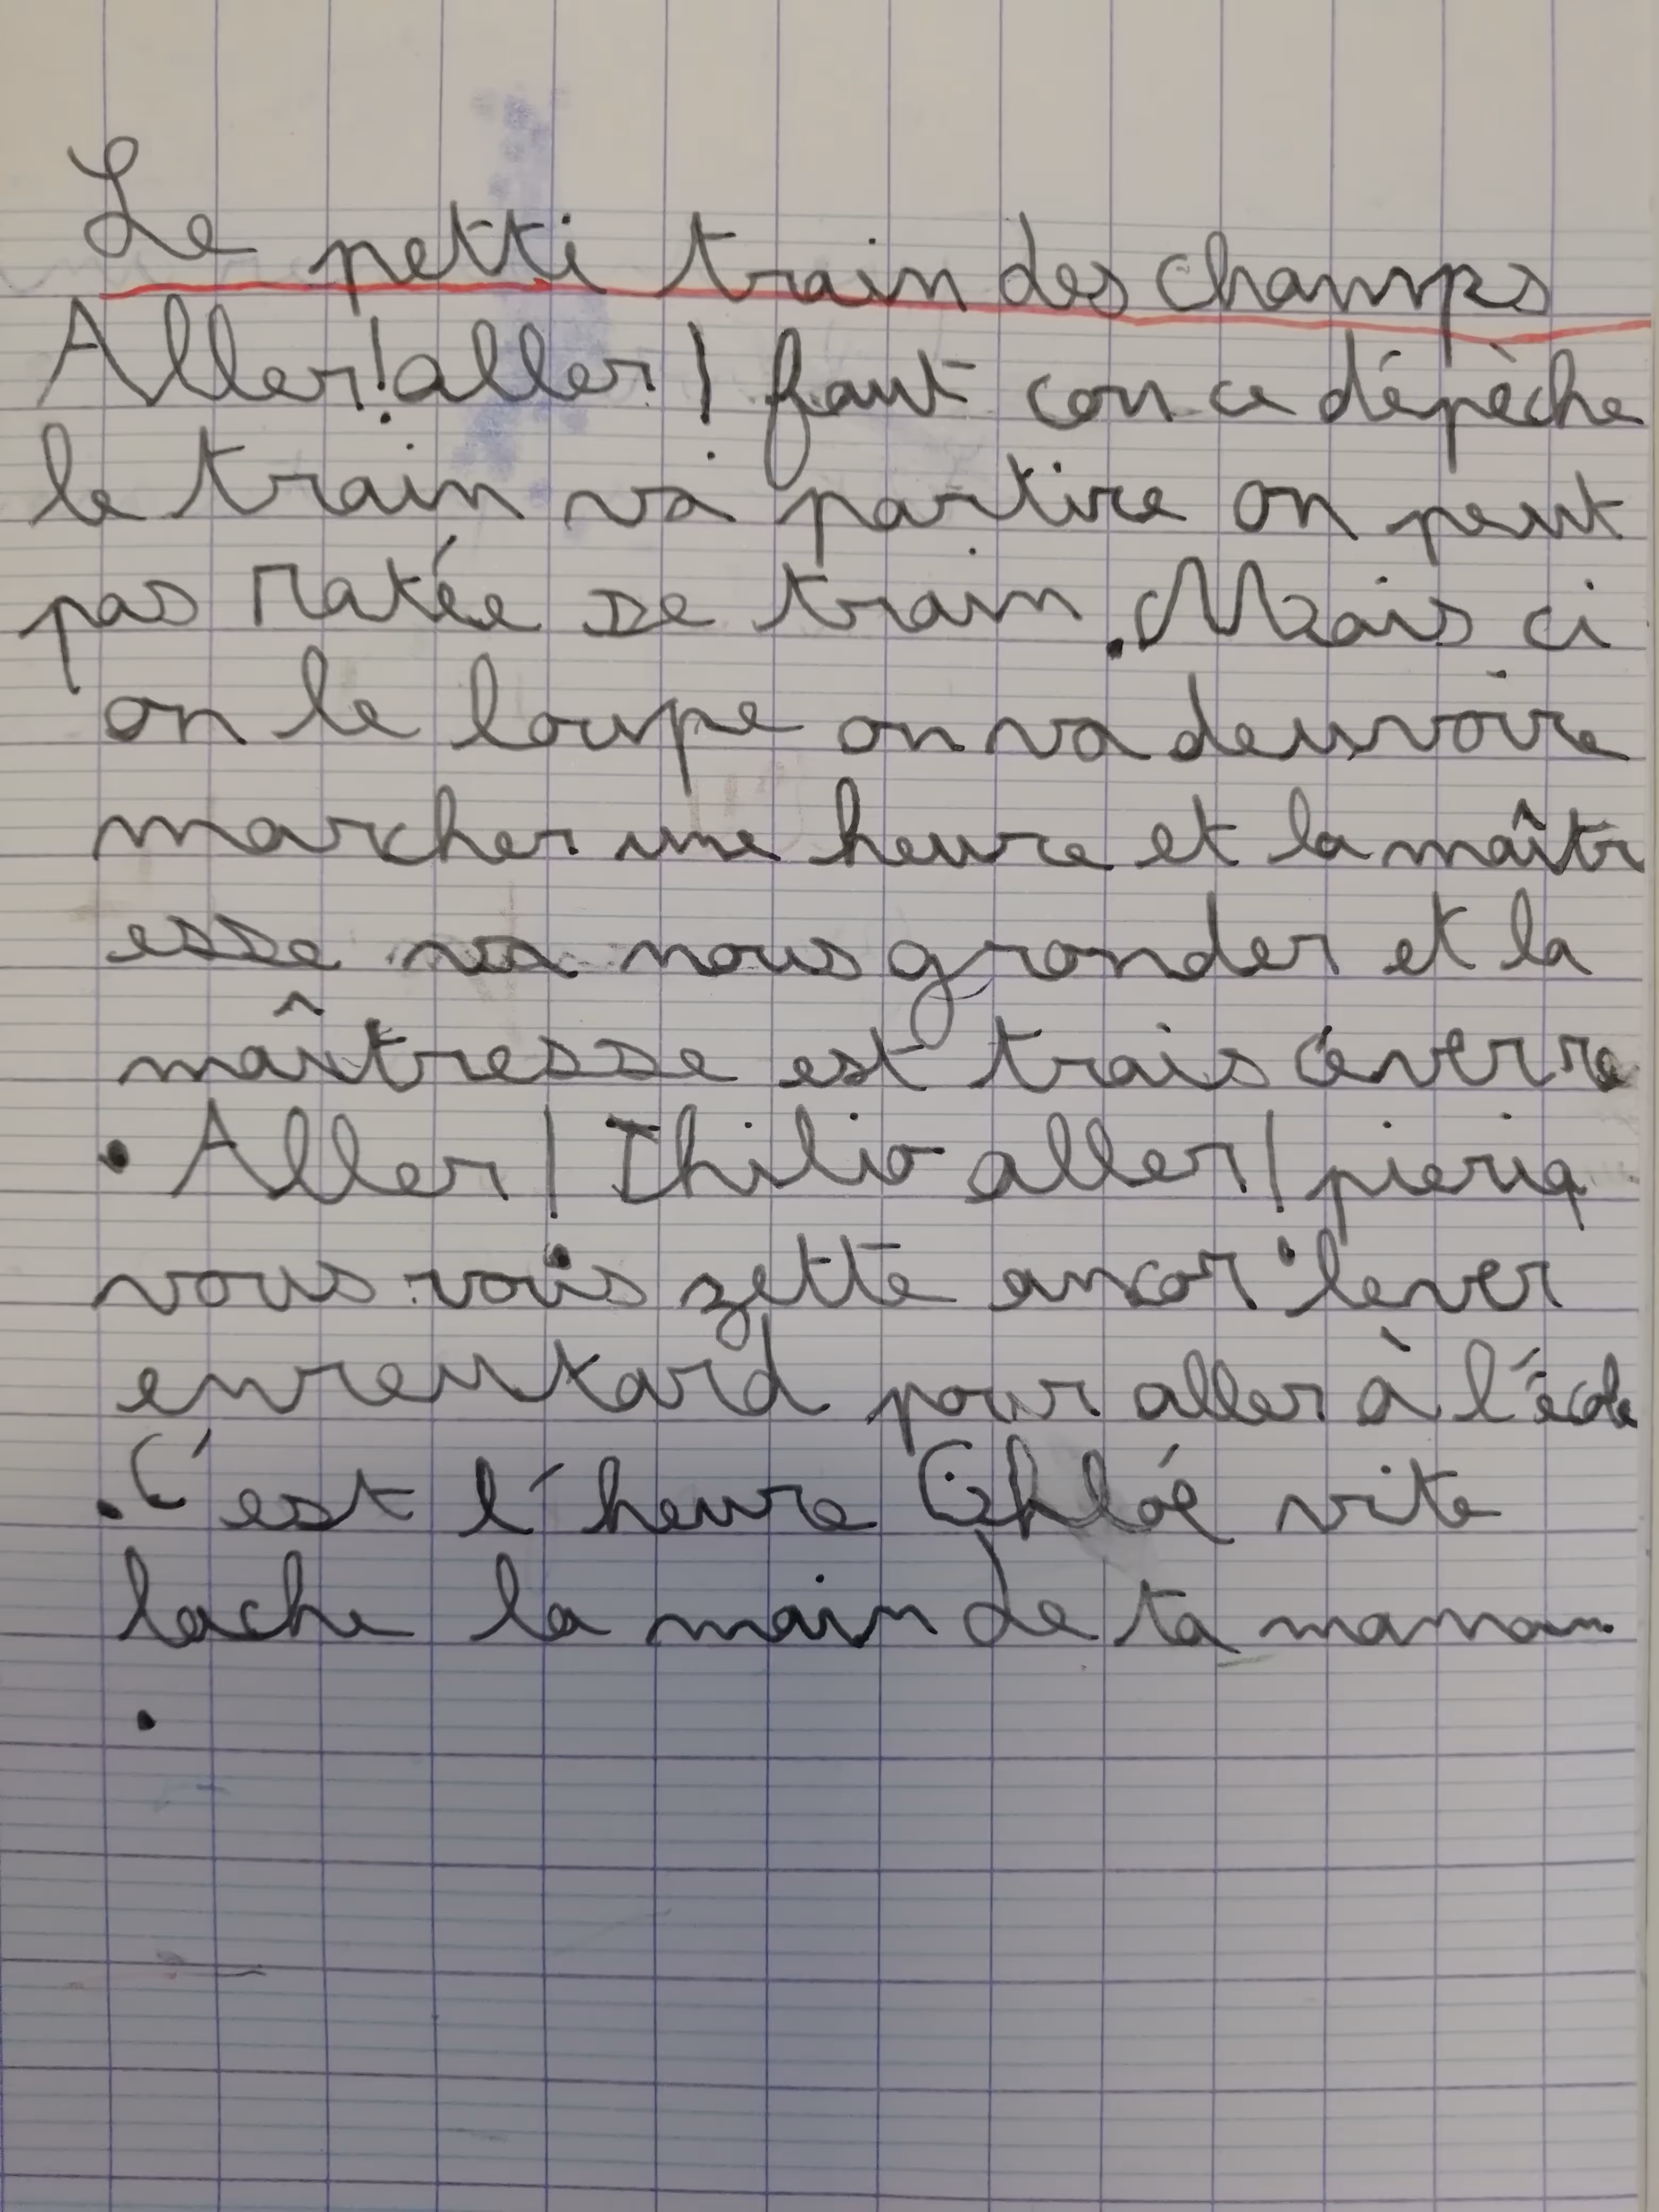 Le petti train des champs
Aller! aller! faut con ce dépèche
le train va partire on peut
pas ratée se train. Mais ci
on le loupe on va deuvoire
marcher une heure et la maîtr
esse va nous gronder et la
maîtresse est trais céverre
. Aller! Thilio aller! pieriq
vous vous zette ancor lever
enreutard pour aller à l'école
. C'est l'heure Chloé vite
lache la main de ta maman
.